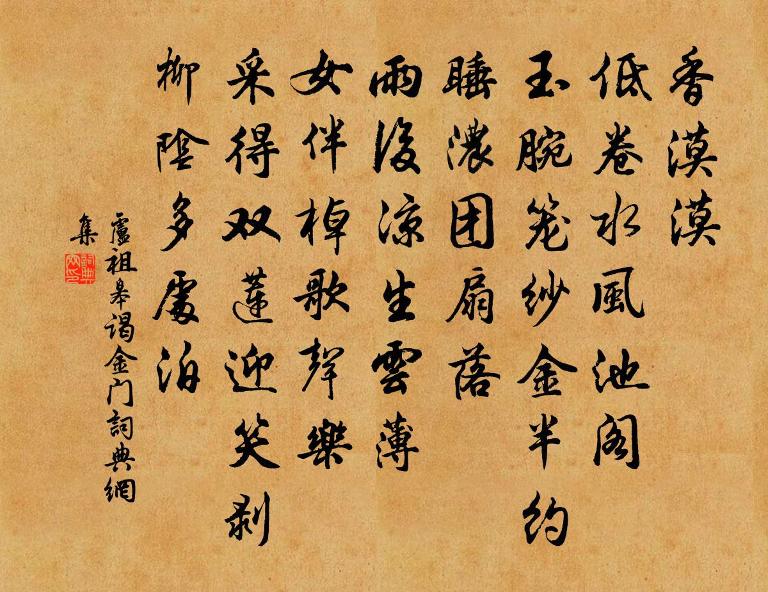 香漠漠
低卷水風池阁
玉腕笼纱金半约
睡濃团扇落
雨後凉生雲薄
女伴棹歌聲樂
采得双蓮迎笑剥
柳陰多處泊
盧祖皋谒金门詞典網
集